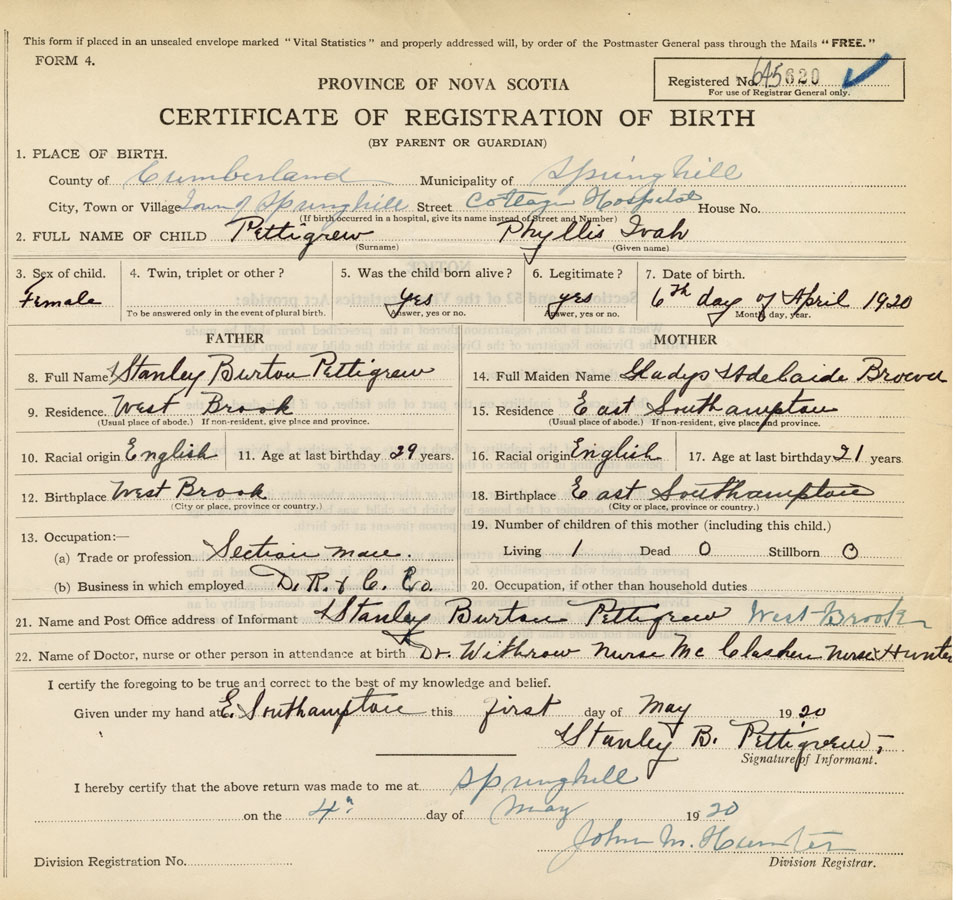 This form if placed in an unsealed envelope marked "Vital Statistics" and properly addressed will, by order of the Postmaster General pass through the Mails "FREE."
FORM 4.
Registered No. 645620
For use of Registrar General only.
PROVINCE OF NOVA SCOTIA
CERTIFICATE OF REGISTRATION OF BIRTH
(BY PARENT OR GUARDIAN)
1. PLACE OF BIRTH.
County of Cumberland Municipality of Springhill
City, Town or Village Town of Springhill Street Cottage Hospital House No.
(If birth occurred in a hospital, give its name instead of Street and Number)
2. FULL NAME OF CHILD Pettigrew Phyllis Ivah
(Surname) (Given name)
3. Sex of child. 4. Twin, triplet or other? 5. Was the child born alive? 6. Legitimate? 7. Date of birth.
Female yes yes 6th day of April 1920
To be answered only in the event of plural birth. Answer, yes or no. Answer, yes or no. Month, day, year.
FATHER MOTHER
8. Full Name Stanley Burton Pettigrew 14. Full Maiden Name Gladys Adelaide Brown
9. Residence. West Brook 15. Residence East Southampton
(Usual place of abode.) If non-resident, give place and province. (Usual place of abode.) If non-resident, give place and province.
10. Racial origin English 11. Age at last birthday 29 years. 16. Racial origin English 17. Age at last birthday 21 years
12. Birthplace West Brook 18. Birthplace East Southampton
(City or place, province or country.) (City or place, province or country.)
13. Occupation:— 19. Number of children of this mother (including this child.)
(a) Trade or profession Section man. Living 1 Dead 0 Stillborn 0
(b) Business in which employed D. R. & C. Co. 20. Occupation, if other than household duties
21. Name and Post Office address of Informant Stanley Burton Pettigrew West Brook
22. Name of Doctor, nurse or other person in attendance at birth Dr. Withrow Nurse Mc Clashen Nurse Hunter
I certify the foregoing to be true and correct to the best of my knowledge and belief.
Given under my hand at E. Southampton this first day of May 1920
Stanley B. Pettigrew,
Signature of Informant.
I hereby certify that the above return was made to me at Springhill
on the 4th day of May 1920
John M. Hunter
Division Registration No. Division Registrar.